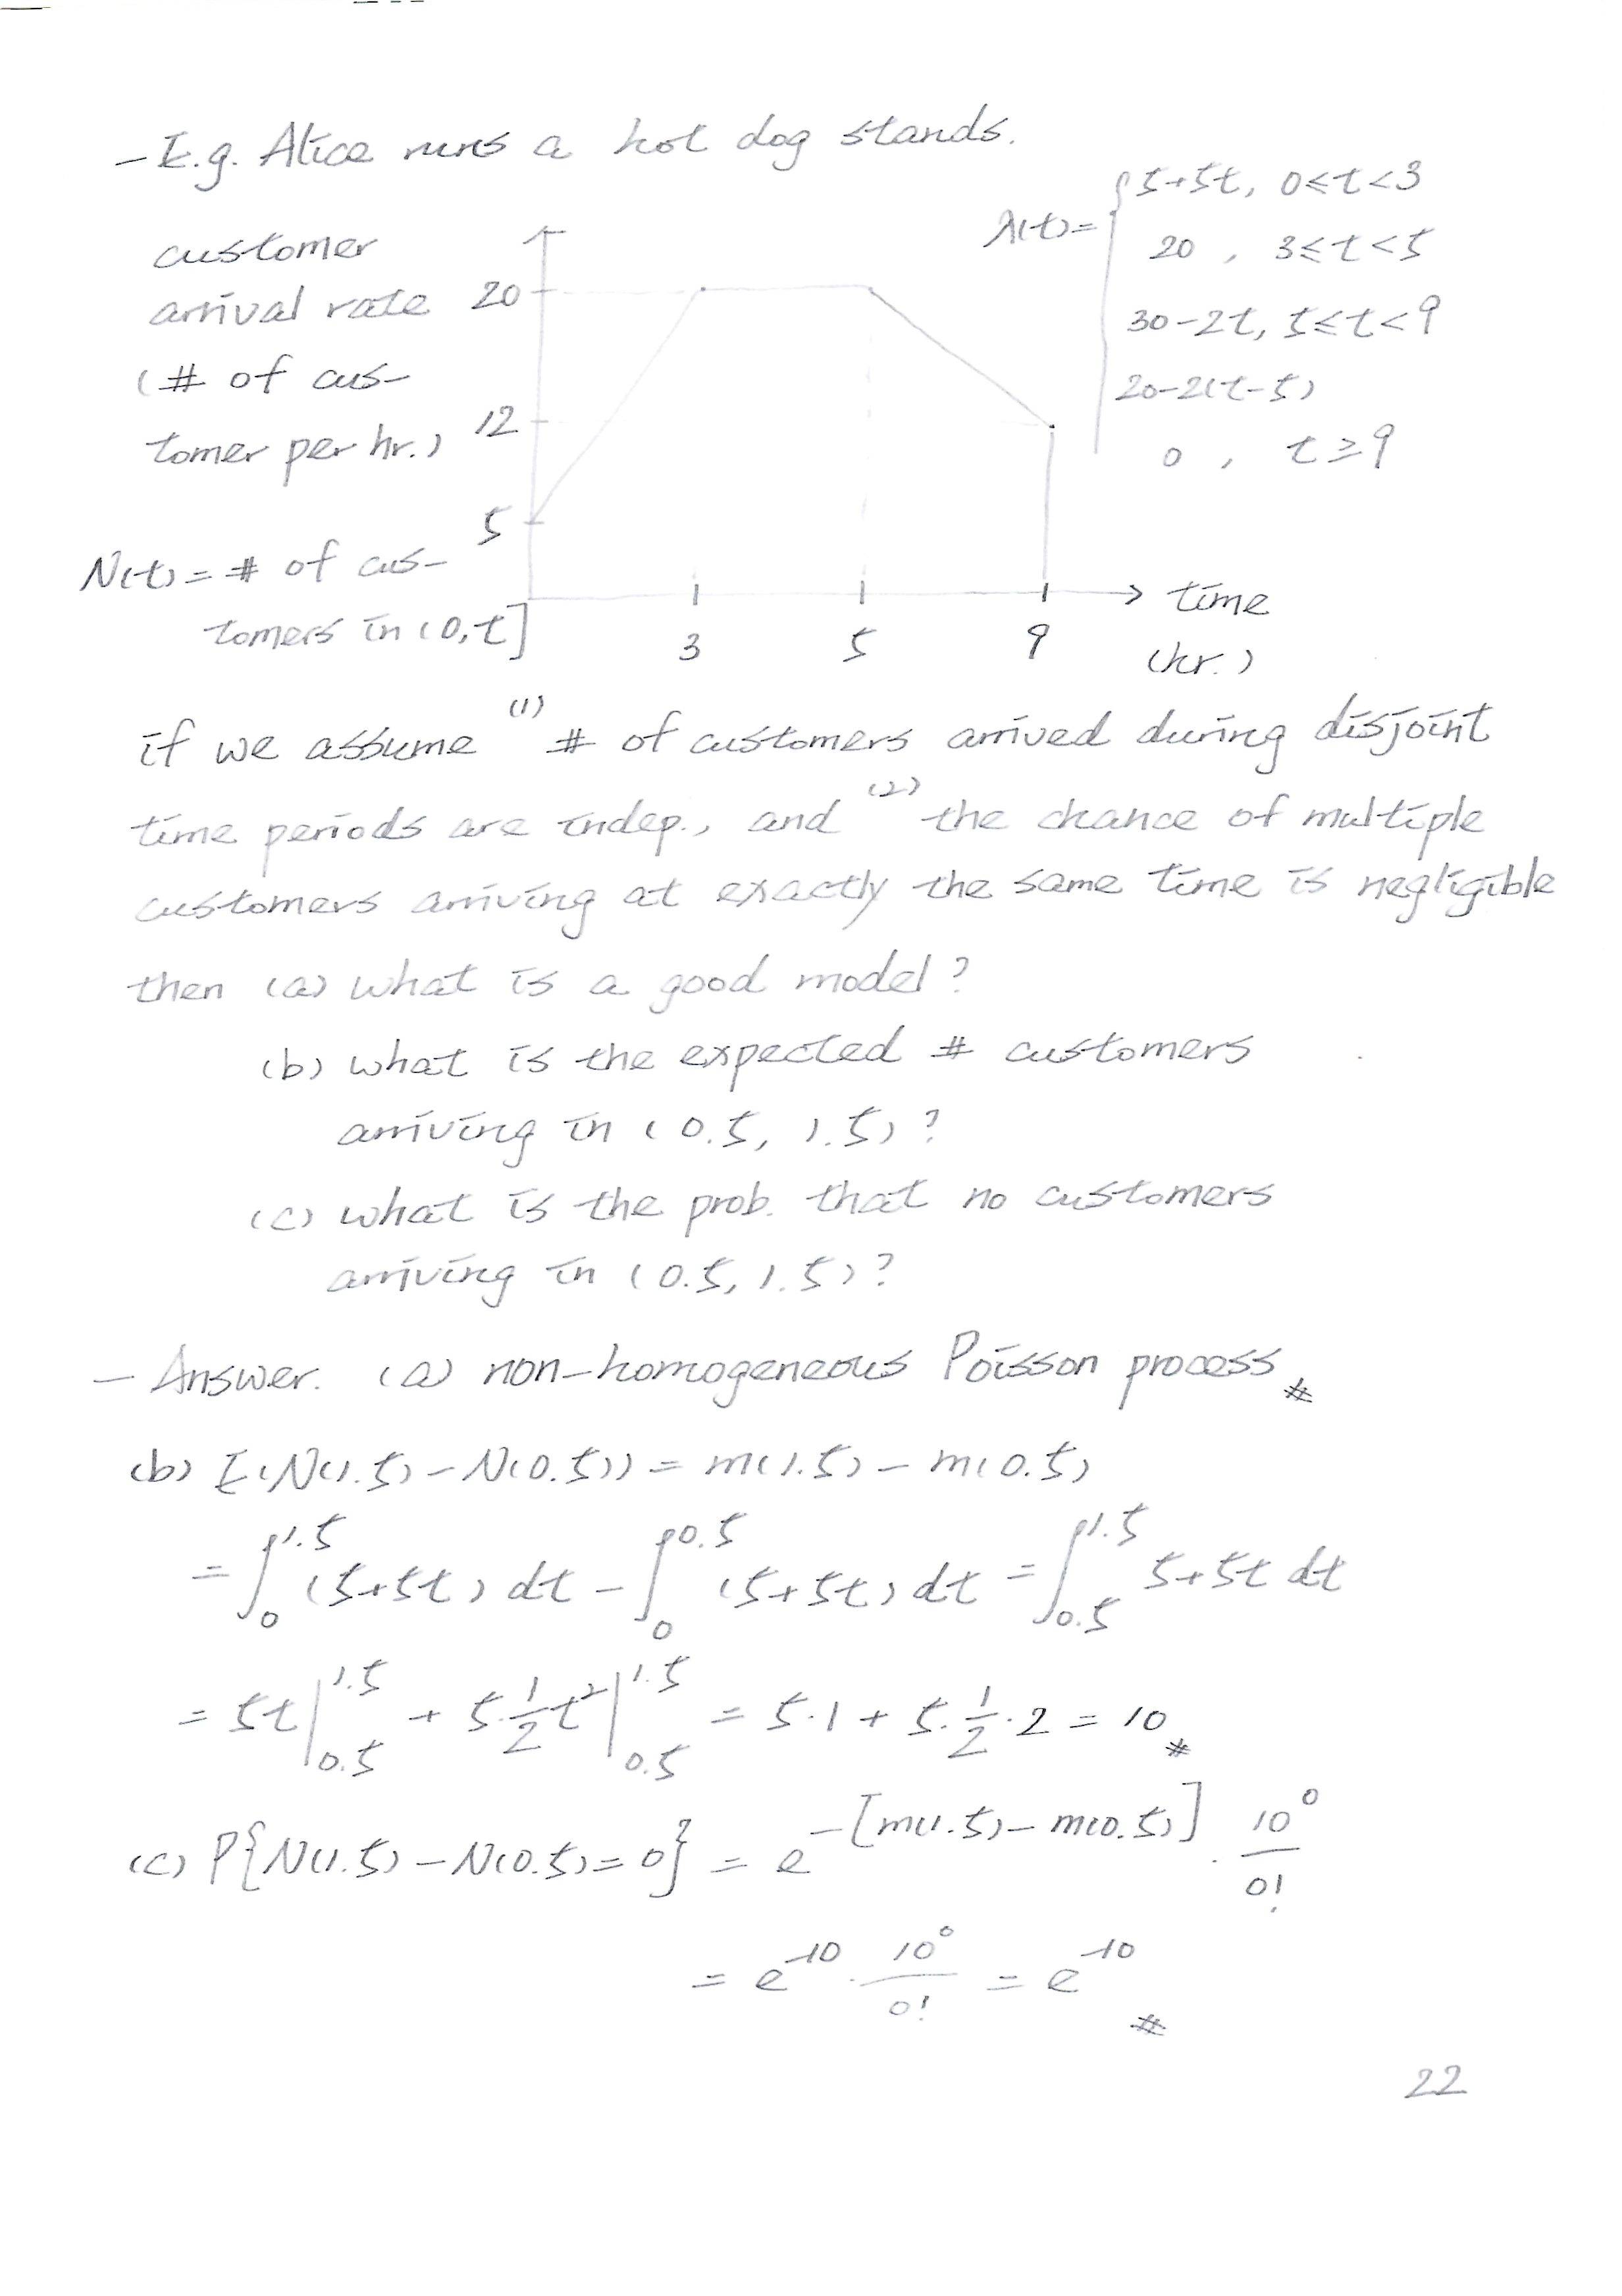 - E.g. Alice runs a hot dog stands.
λ(t)= { 5+5t, 0≤t<3
20 , 3≤t<5
30-2t, 5≤t<9
20-2(t-5)
0 , t≥9
customer
arrival rate
(# of cus-
tomer per hr.)
20
12
5
N(t) = # of cus-
tomers in (0,t]
3 5 9
time
(hr.)
if we assume (1) # of customers arrived during disjoint
time periods are indep., and (2) the chance of multiple
customers arriving at exactly the same time is negligible
then (a) what is a good model?
(b) what is the expected # customers
arriving in (0.5, 1.5)?
(c) what is the prob. that no customers
arriving in (0.5, 1.5)?
- Answer. (a) non-homogeneous Poisson process #
(b) E(N(1.5) - N(0.5)) = m(1.5) - m(0.5)
= ∫₀^1.5 (5+5t) dt - ∫₀^0.5 (5+5t) dt = ∫_0.5^1.5 5+5t dt
= 5t |_0.5^1.5 + 5·½t² |_0.5^1.5 = 5·1 + 5·½·2 = 10 #
(c) P{N(1.5) - N(0.5) = 0} = e^-[m(1.5) - m(0.5)] · 10⁰/0!
= e^-10 · 10⁰/0! = e^-10 #
22